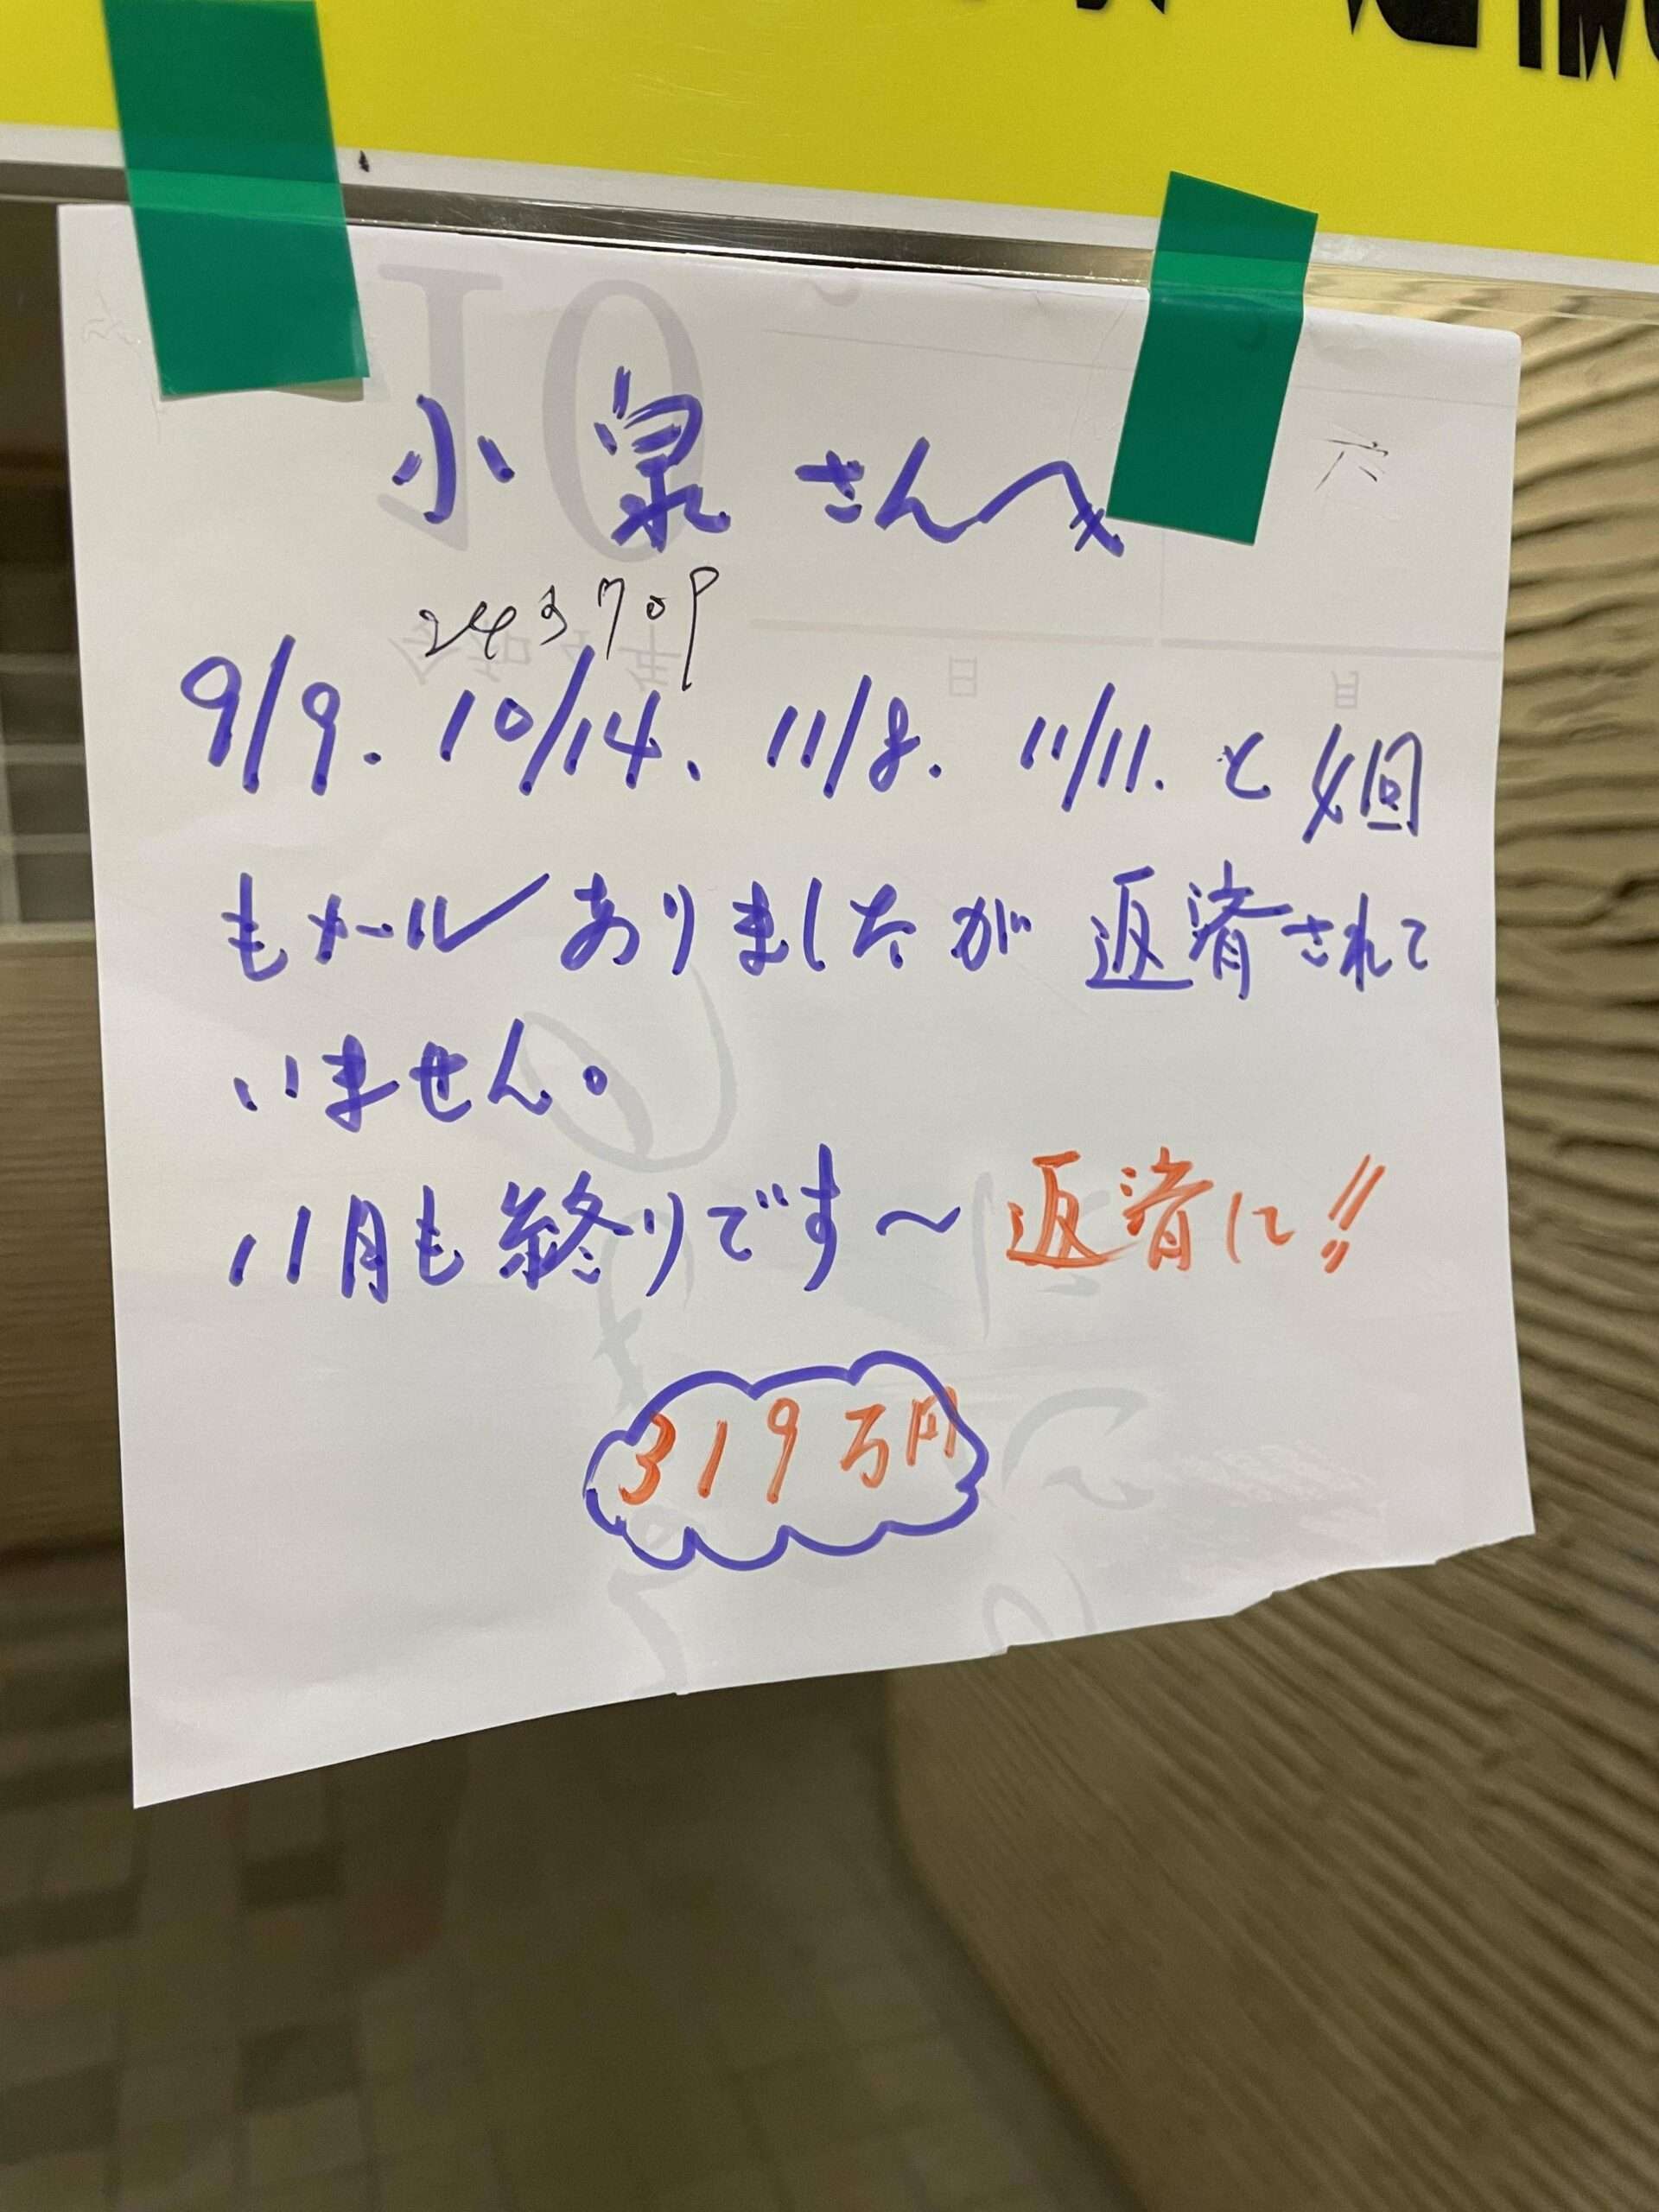 小泉さんへ
9/9. 10/14、11/8. 11/11. と4回
もメールありましたが返済されて
いません。
11月も終りです〜返済に!!
319万円